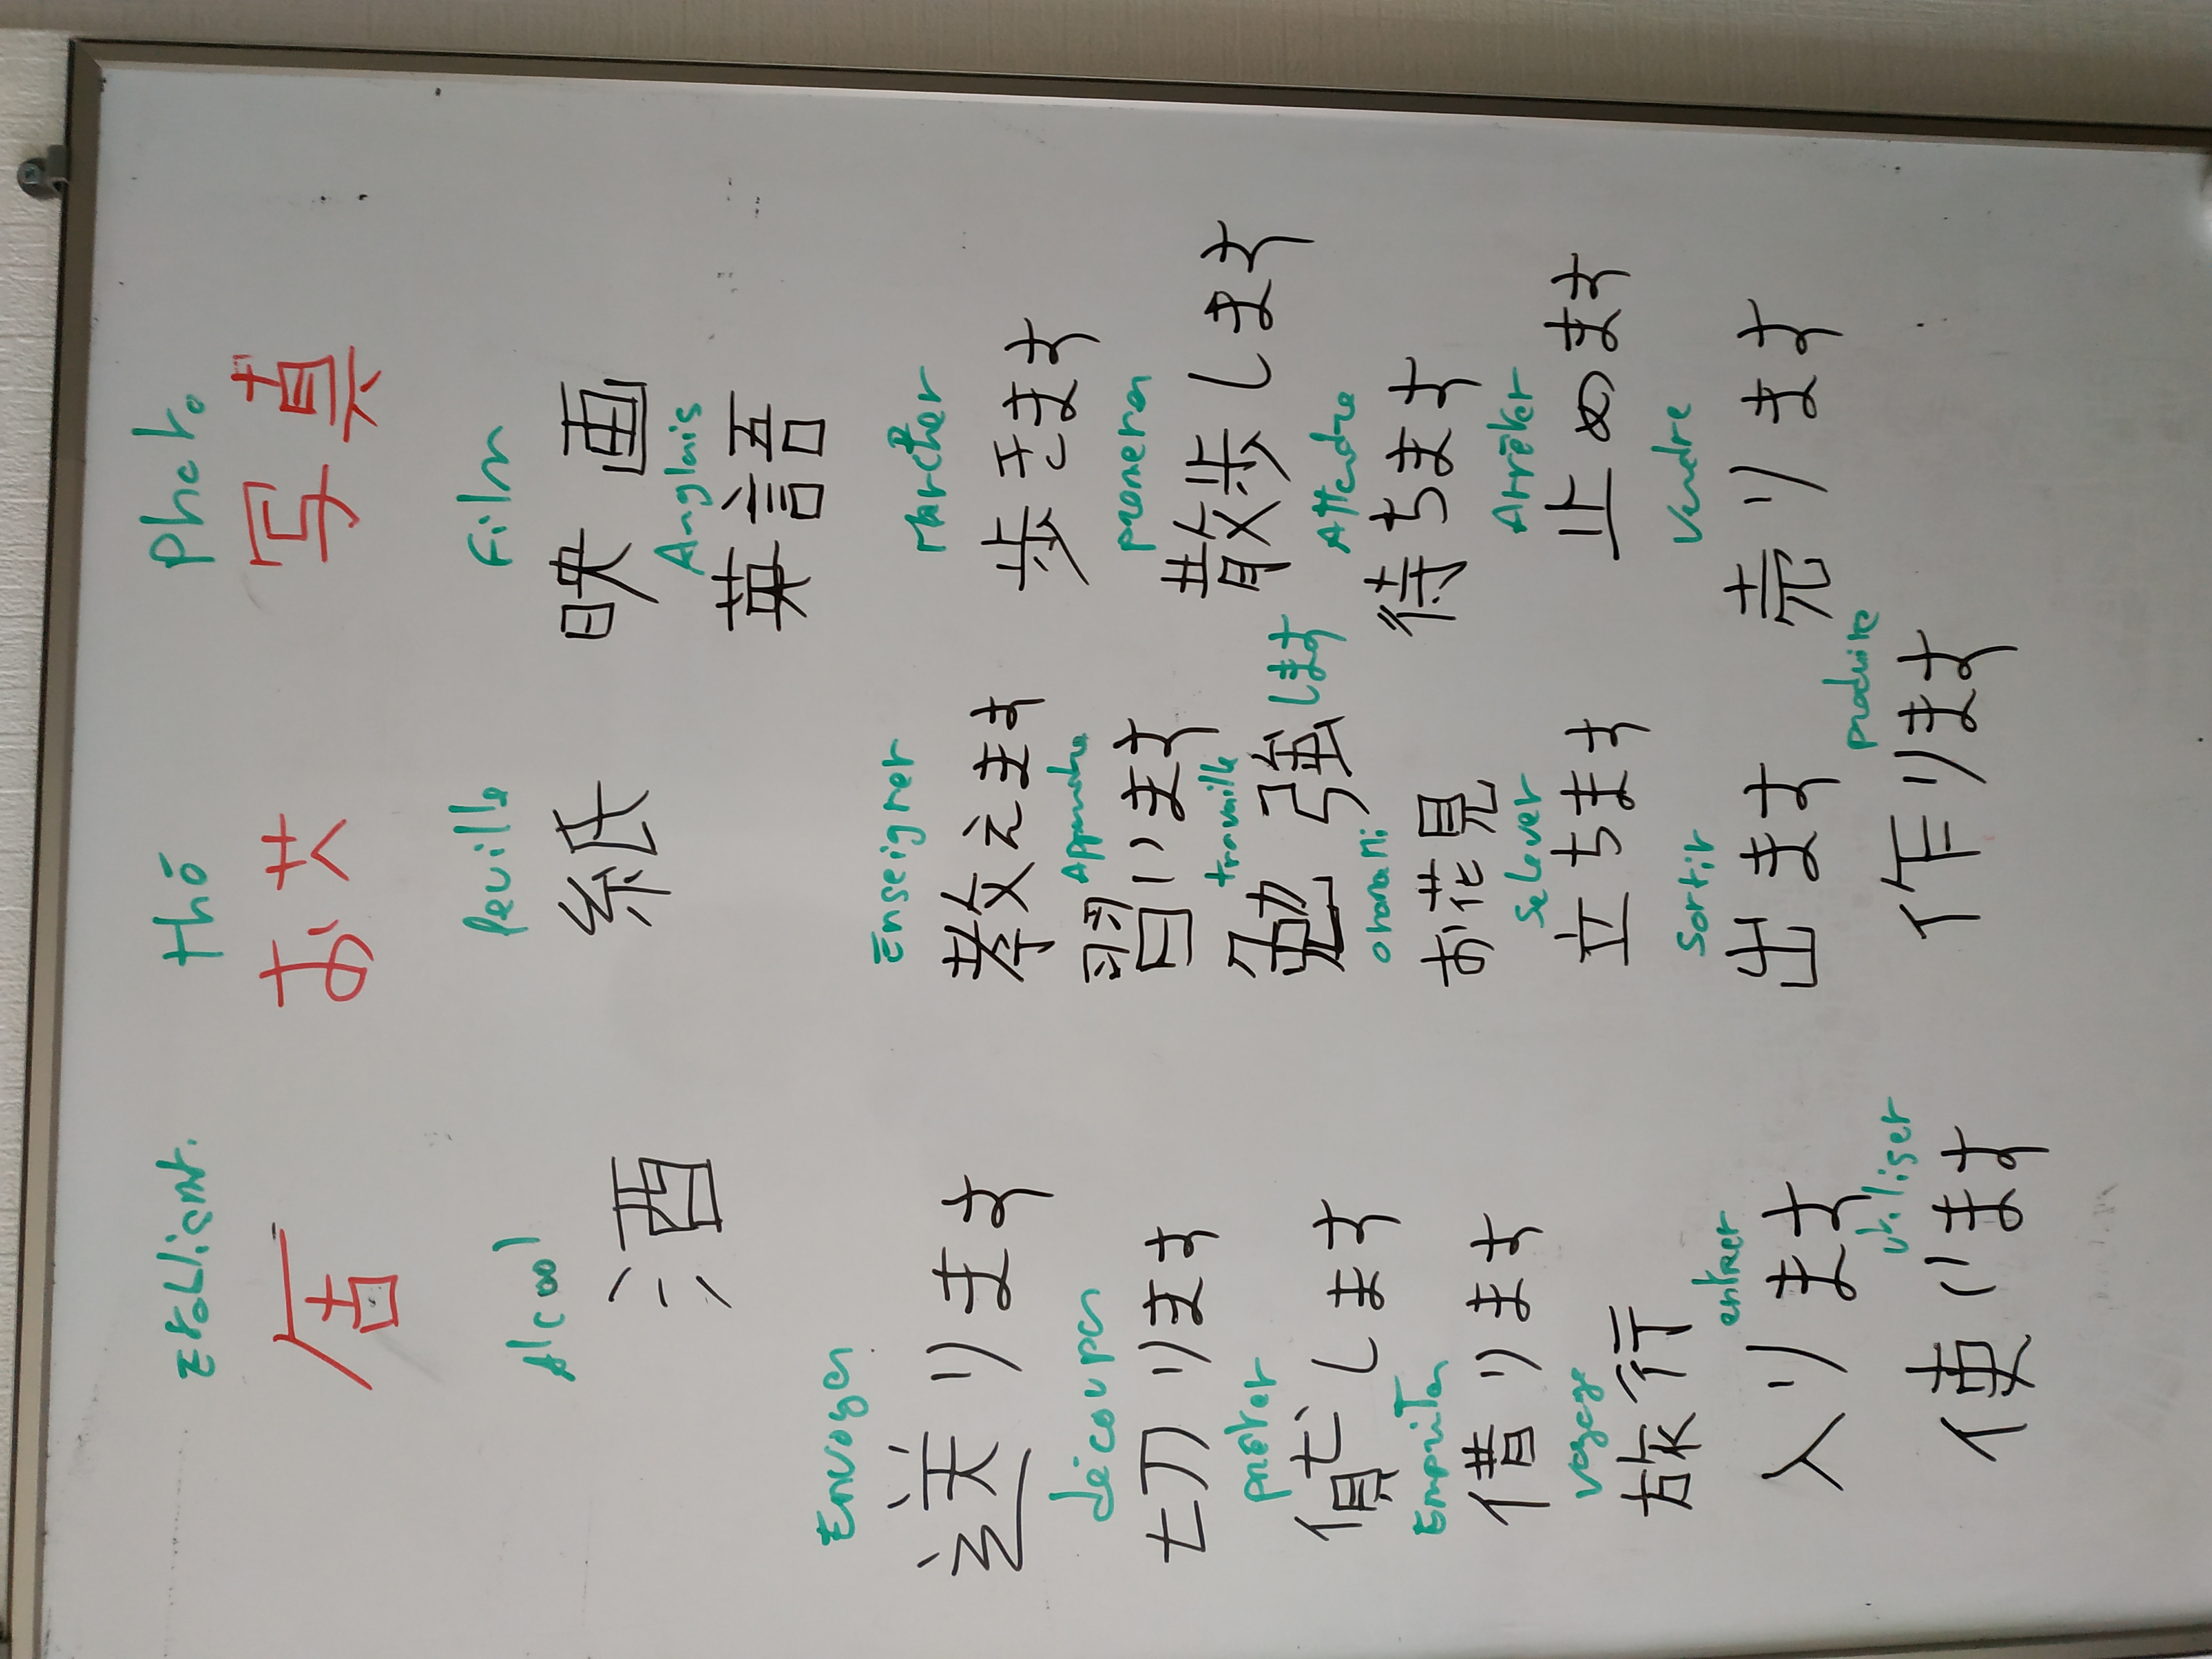 Etablismt. Thé Photo
店 お茶 写真
Alcool feuille Film
酒 紙 映画
Anglais
英語
Envoyer Enseigner Marcher
送ります 教えます 歩きます
découper Apprendre promener
切ります 習います 散歩します
prêter travaille Attendre
貸します 勉強します 待ちます
ohanami Arrêter
借ります お花見 止めます
voyage se Lever Vendre
旅行 立ちます 売ります
entrer Sortir produire
入ります 出ます 作ります
utiliser
使います